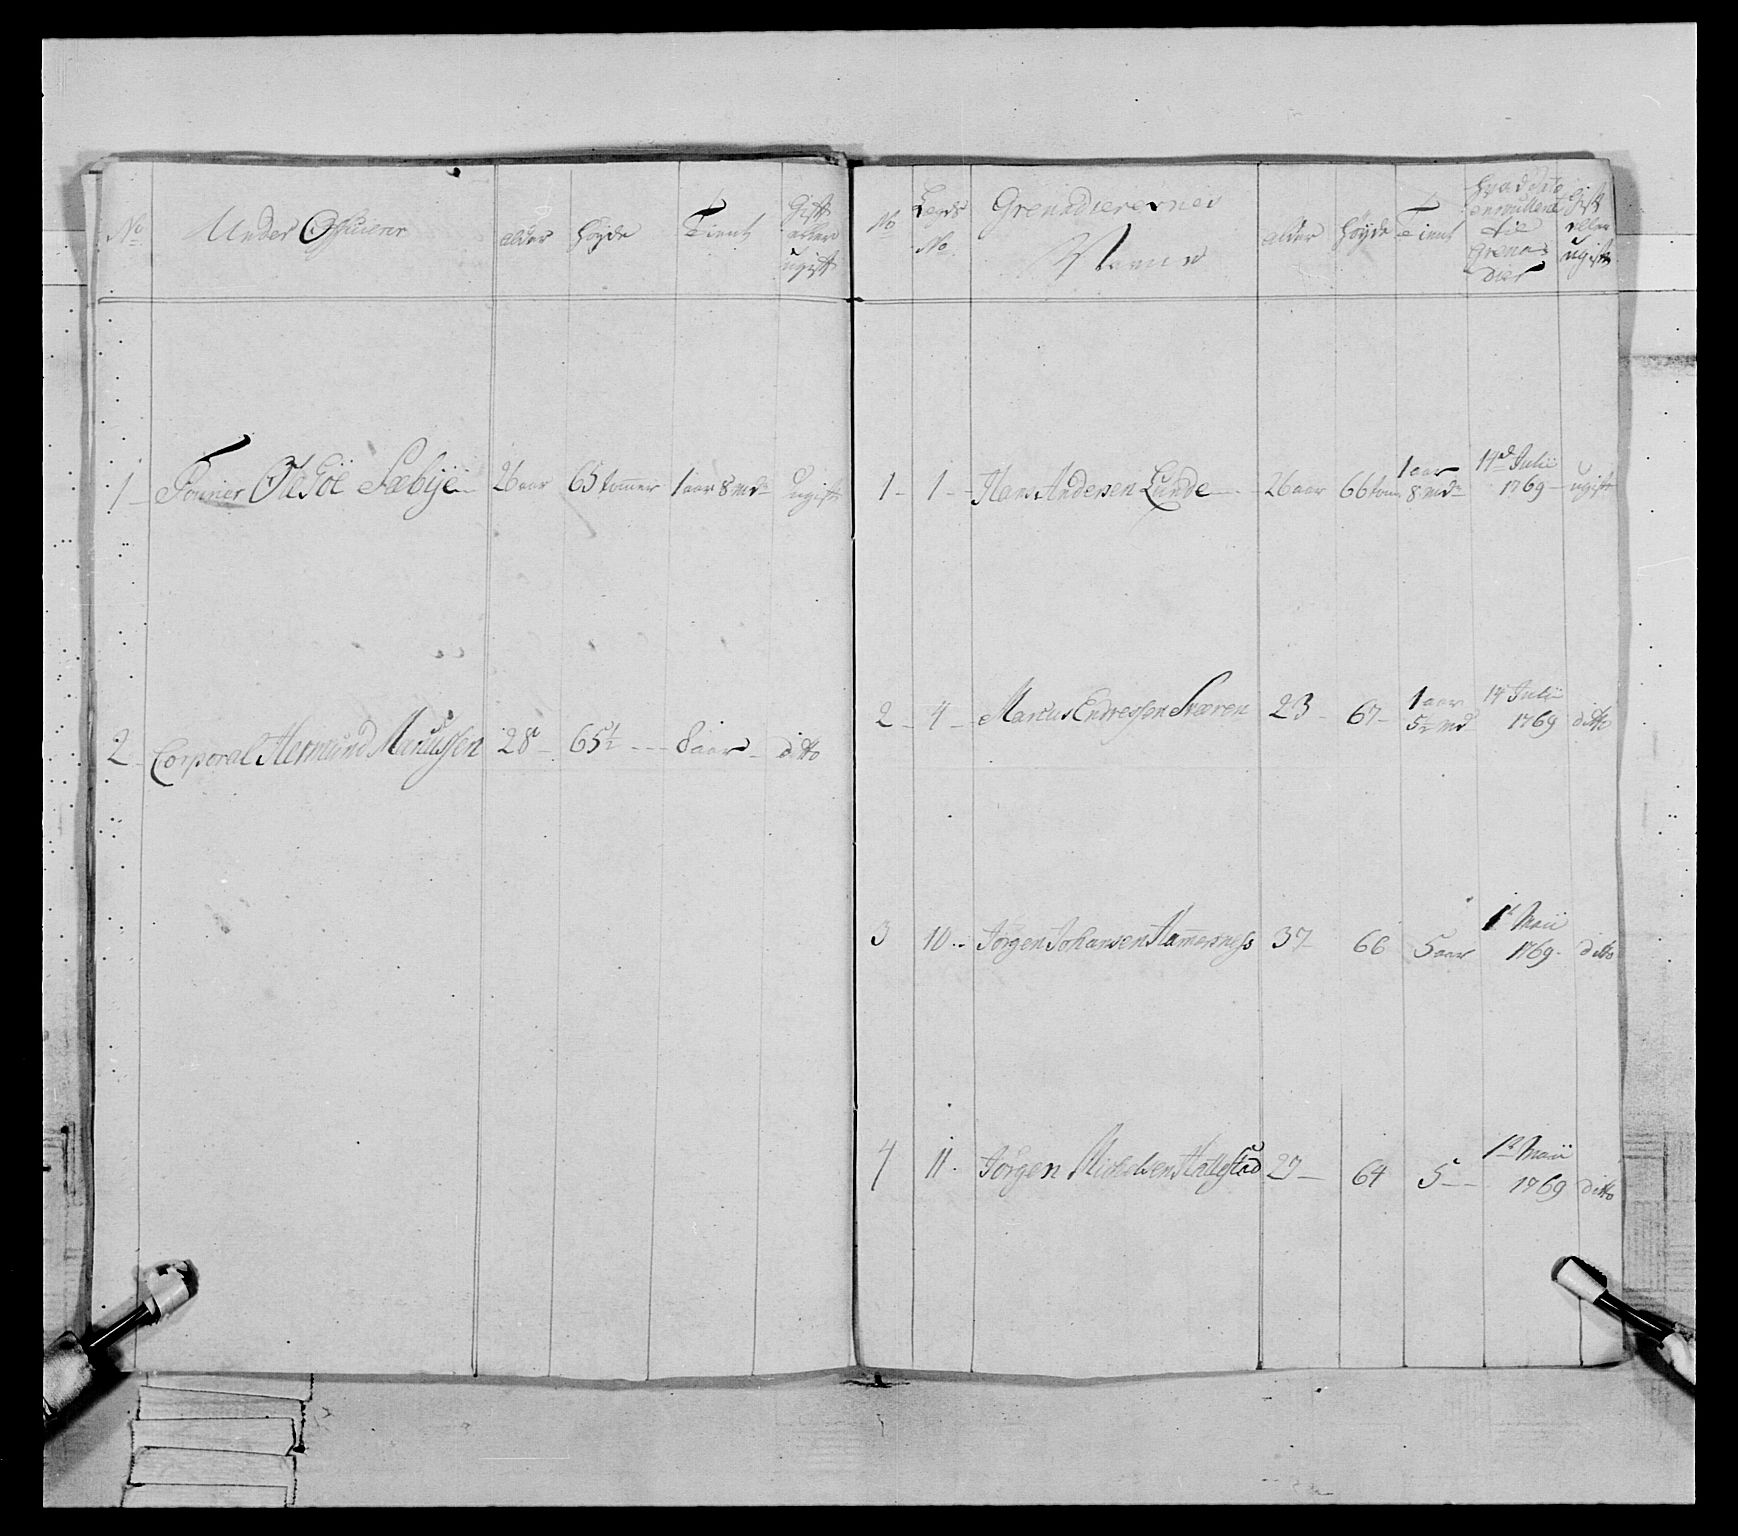 No Under Officierer alder Høyde Tient Gift eller ugift
1 Fourier Ole Joel Sæbÿe 26 aar 65 tommer 1 aar 8 md ugift
2 Corporal Hermund Manussen 28 65½ 8 aar ditto
No Legds No. Grenadierernes Navne alder Høyde Tient Grenadier Gift eller ugift
1 1 Hans Andersen Lunde 26 aar 66 tom 1 aar 8 md 14d Julii 1769 ugift
2 4 Marcus Endressen 23 67 1 aar 5½ md 14 Julii 1769 ditto
3 10 Jørgen Johansen Hamersness 37 66 5 aar 1d Maii 1769 ditto
4 11 Jørgen Michelsen Hallestad 27 64 5 1d Maii 1769 ditto